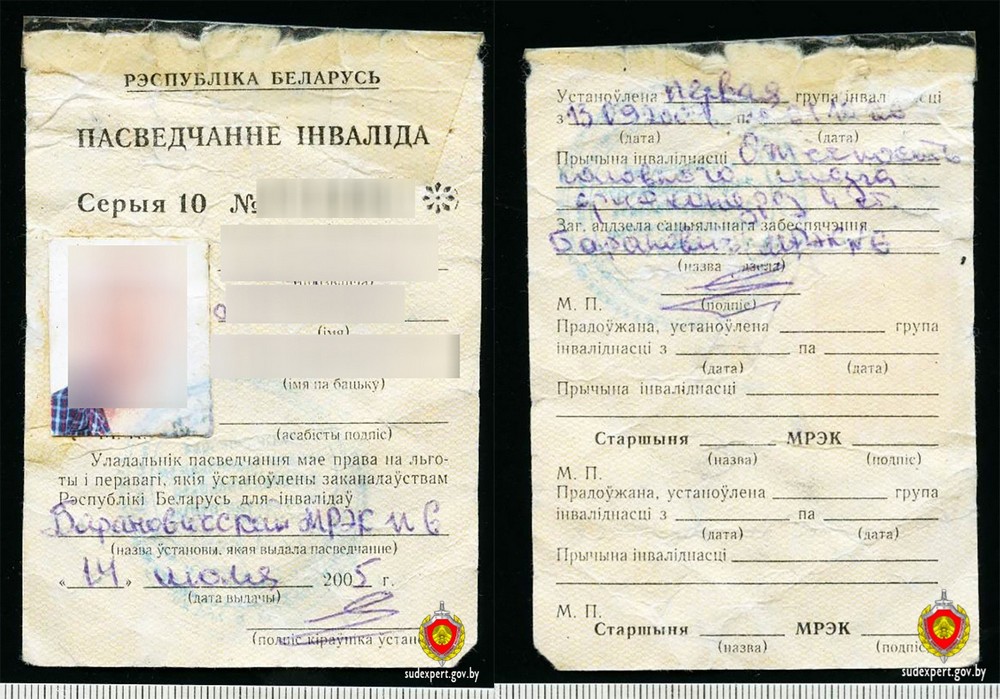 РЭСПУБЛІКА БЕЛАРУСЬ
ПАСВЕДЧАННЕ ІНВАЛІДА
Серыя 10 №
(імя)
(імя па бацьку)
(асабісты подпіс)
Уладальнік пасведчання мае права на льго-
ты і перавагі, якія ўстаноўлены заканадаўствам
Рэспублікі Беларусь для інвалідаў
Барановичская МРЭК № 6
(назва ўстановы, якая выдала пасведчанне)
« 14 » июля 2005 г.
(дата выдачы)
(подпіс кіраўніка
sudexpert.gov.by
Устаноўлена первая група інвал сці
з
(дата) (дата)
Прычына інваліднасці
головного мозга
Заг. аддзела сацыяльнага забеспячэння
Баранович МРЭК № 6
(назва аддзела)
(подпіс)
М. П.
Прадоўжана, устаноўлена група
інваліднасці з па
(дата) (дата)
Прычына інваліднасці
Старшыня МРЭК
(назва) (подпіс)
М. П.
Прадоўжана, устаноўлена група
інваліднасці з па
(дата) (дата)
Прычына інваліднасці
М. П.
Старшыня МРЭК
(назва)
sudexpert.gov.by